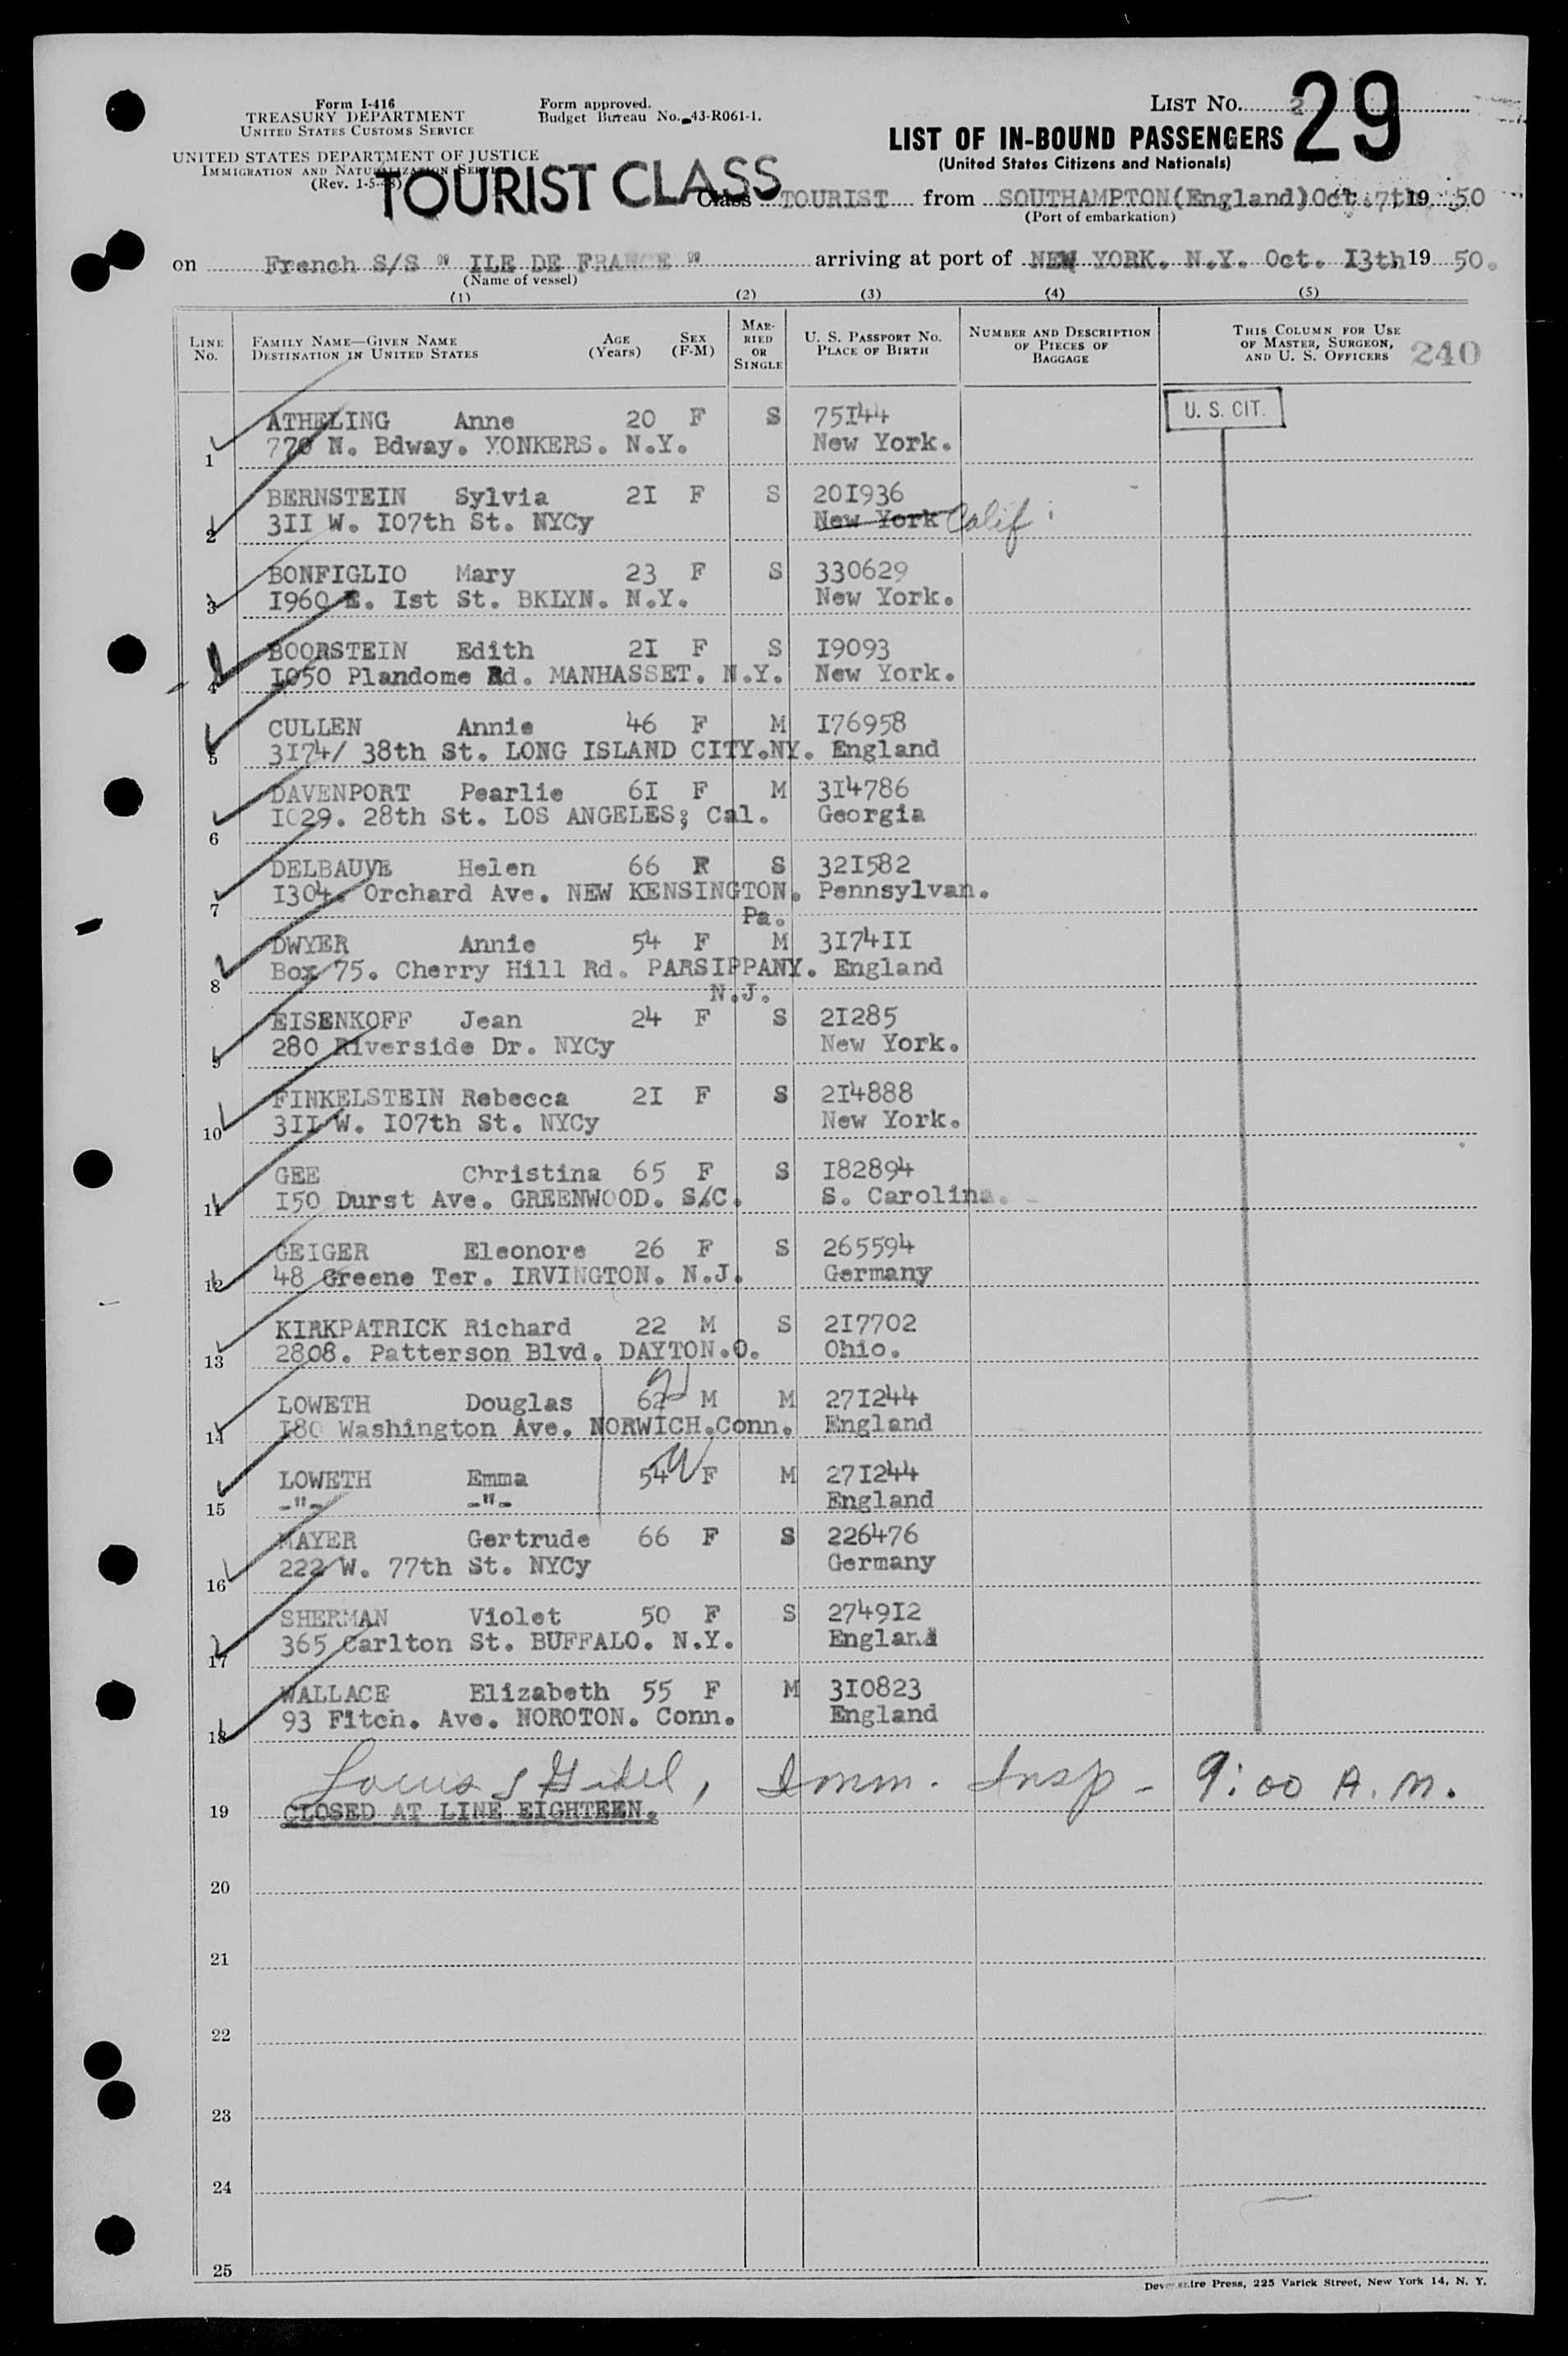 Form I-416
TREASURY DEPARTMENT
UNITED STATES CUSTOMS SERVICE
Form approved.
Budget Bureau No. 43-R061-1.
LIST NO. 2
29
LIST OF IN-BOUND PASSENGERS
(United States Citizens and Nationals)
UNITED STATES DEPARTMENT OF JUSTICE
IMMIGRATION AND NATURALIZATION SERVICE
(Rev. 1-5-48)
TOURIST CLASS
Class TOURIST from SOUTHAMPTON(England)Oct.7th 19 50
(Port of embarkation)
on French S/S " ILE DE FRANCE " arriving at port of NEW YORK. N.Y. Oct. I3th 19 50.
(Name of vessel)
(1) (2) (3) (4) (5)
LINE No. FAMILY NAME—GIVEN NAME DESTINATION IN UNITED STATES AGE (Years) SEX (F-M) MARRIED OR SINGLE U. S. PASSPORT NO. PLACE OF BIRTH NUMBER AND DESCRIPTION OF PIECES OF BAGGAGE THIS COLUMN FOR USE OF MASTER, SURGEON, AND U. S. OFFICERS 240
U. S. CIT.
ATHELING Anne 20 F S 75I44
1 770 N. Bdway. YONKERS. N.Y. New York.
BERNSTEIN Sylvia 2I F S 20I936
2 3II W. I07th St. NYCy New York Calif
BONFIGLIO Mary 23 F S 330629
3 I960 E. Ist St. BKLYN. N.Y. New York.
BOORSTEIN Edith 2I F S I9093
4 I050 Plandome Rd. MANHASSET. N.Y. New York.
CULLEN Annie 46 F M I76958
5 3I74/ 38th St. LONG ISLAND CITY.NY. England
DAVENPORT Pearlie 6I F M 3I4786
6 I029. 28th St. LOS ANGELES; Cal. Georgia
DELBAUVE Helen 66 F S 32I582
7 I304. Orchard Ave. NEW KENSINGTON. Pennsylvan.
Pa.
DWYER Annie 54 F M 3I74II
8 Box 75. Cherry Hill Rd. PARSIPPANY. England
N.J.
EISENKOFF Jean 24 F S 2I285
9 280 Riverside Dr. NYCy New York.
FINKELSTEIN Rebecca 2I F S 2I4888
10 3II W. I07th St. NYCy New York.
GEE Christina 65 F S I82894
11 I50 Durst Ave. GREENWOOD. S/C. S. Carolina.
GEIGER Eleonore 26 F S 265594
12 48 Greene Ter. IRVINGTON. N.J. Germany
KIRKPATRICK Richard 22 M S 2I7702
13 2808. Patterson Blvd. DAYTON.O. Ohio.
LOWETH Douglas 62 M M 27I244
14 I80 Washington Ave. NORWICH.Conn. England
LOWETH Emma 54 F M 27I244
15 -"- -"- England
MAYER Gertrude 66 F S 226476
16 222 W. 77th St. NYCy Germany
SHERMAN Violet 50 F S 2749I2
17 365 Carlton St. BUFFALO. N.Y. England
WALLACE Elizabeth 55 F M 3I0823
18 93 Fitch. Ave. NOROTON. Conn. England
Imm. Insp - 9:00 A.M.
19 CLOSED AT LINE EIGHTEEN.
20
21
22
23
24
25
Press, 225 Varick Street, New York 14, N. Y.